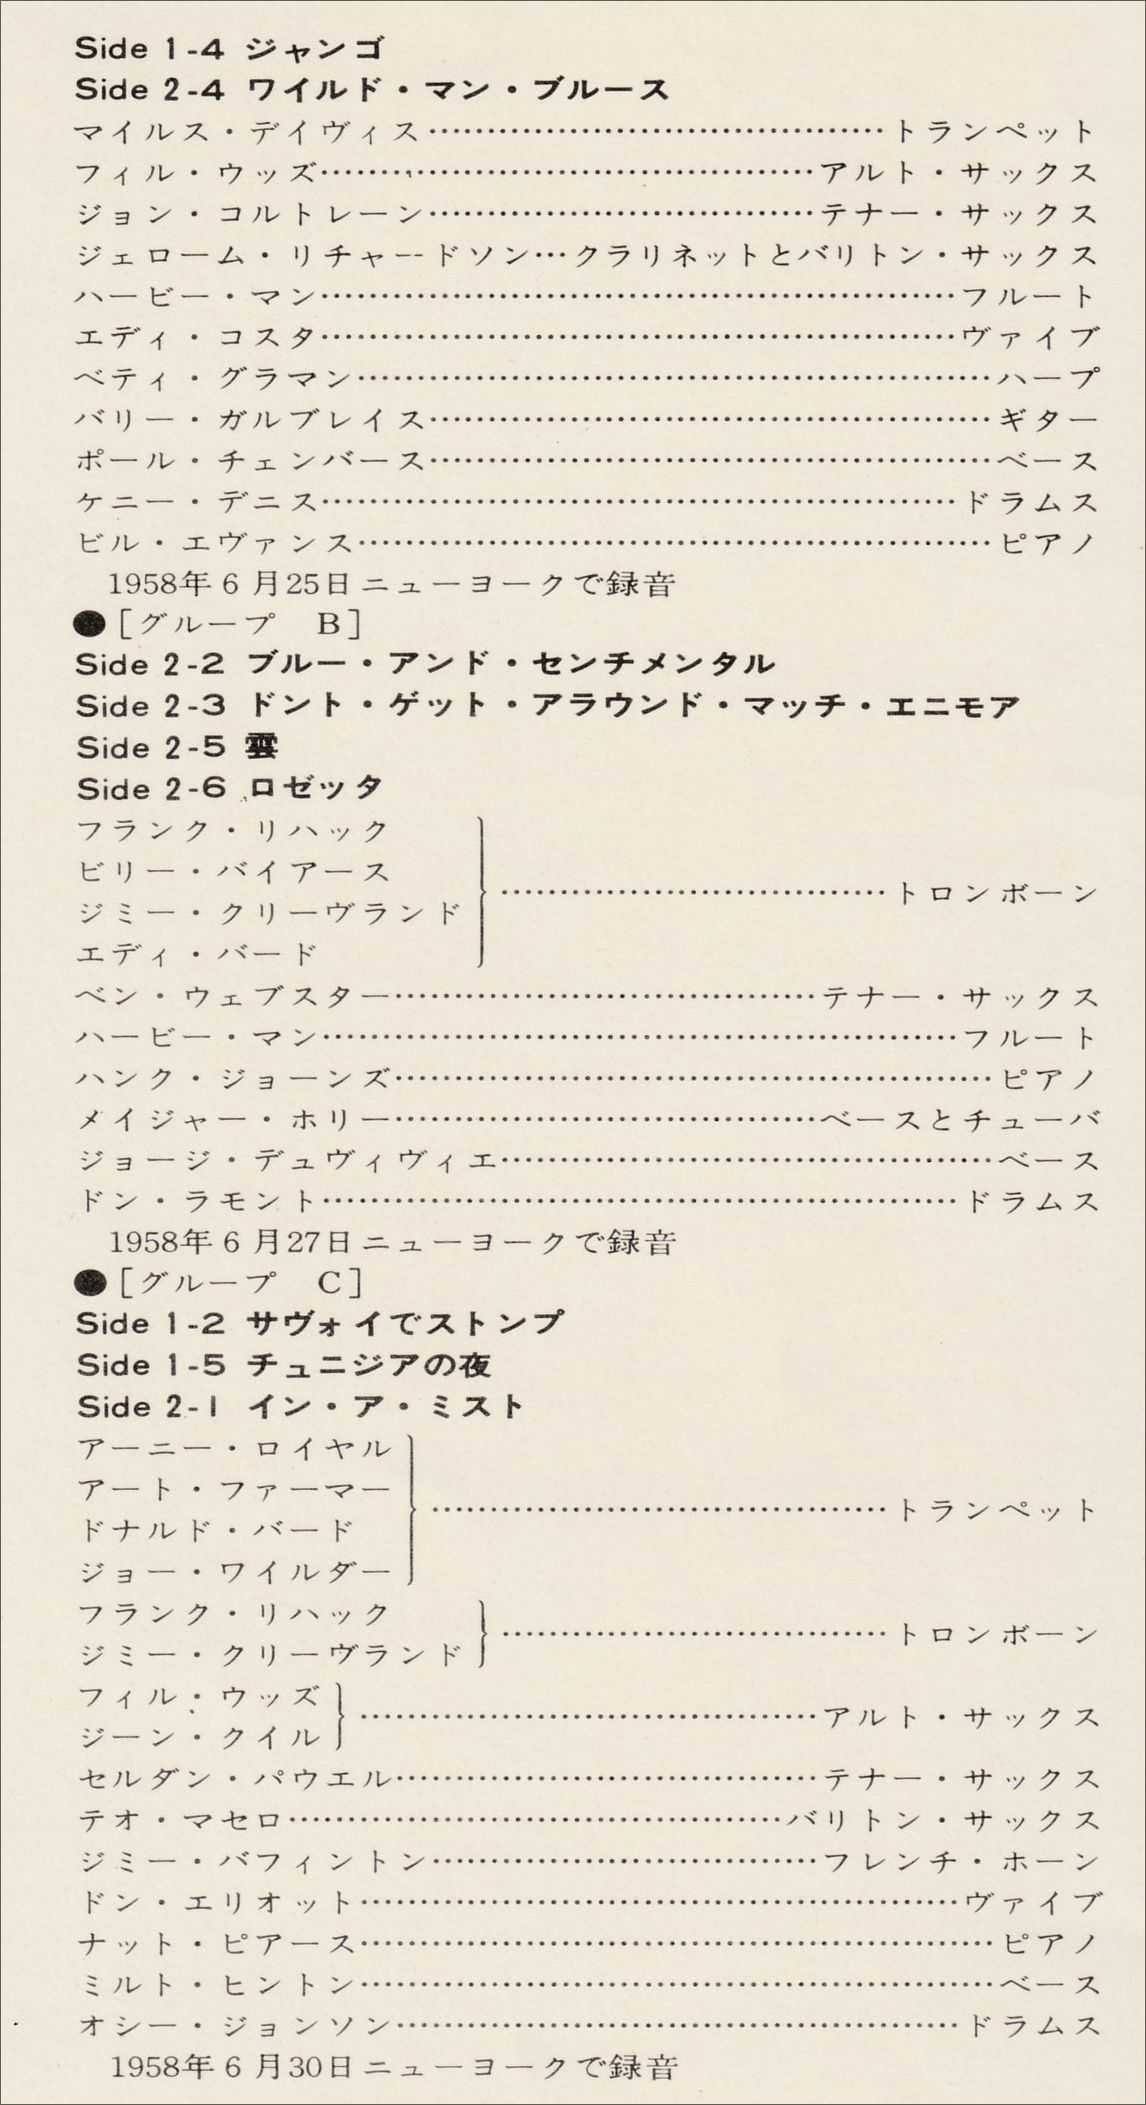 Side 1-4 ジャンゴ
Side 2-4 ワイルド・マン・ブルース
マイルス・デイヴィス……………………………………トランペット
フィル・ウッズ……………………………………アルト・サックス
ジョン・コルトレーン……………………………テナー・サックス
ジェローム・リチャードソン…クラリネットとバリトン・サックス
ハービー・マン……………………………………………フルート
エディ・コスタ……………………………………………ヴァイブ
ベティ・グラマン……………………………………………ハープ
バリー・ガルブレイス………………………………………ギター
ポール・チェンバース………………………………………ベース
ケニー・デニス……………………………………………ドラムス
ビル・エヴァンス……………………………………………ピアノ
1958年6月25日ニューヨークで録音
●[グループ B]
Side 2-2 ブルー・アンド・センチメンタル
Side 2-3 ドント・ゲット・アラウンド・マッチ・エニモア
Side 2-5 雲
Side 2-6 ロゼッタ
フランク・リハック
ビリー・バイアース
ジミー・クリーヴランド
エディ・バード
……………………………トロンボーン
ベン・ウェブスター………………………………テナー・サックス
ハービー・マン……………………………………………フルート
ハンク・ジョーンズ…………………………………………ピアノ
メイジャー・ホリー………………………………ベースとチューバ
ジョージ・デュヴィヴィエ…………………………………ベース
ドン・ラモント……………………………………………ドラムス
1958年6月27日ニューヨークで録音
●[グループ C]
Side 1-2 サヴォイでストンプ
Side 1-5 チュニジアの夜
Side 2-1 イン・ア・ミスト
アーニー・ロイヤル
アート・ファーマー
ドナルド・バード
ジョー・ワイルダー
…………………………………トランペット
フランク・リハック
ジミー・クリーヴランド
……………………………トロンボーン
フィル・ウッズ
ジーン・クイル
…………………………………アルト・サックス
セルダン・パウエル………………………………テナー・サックス
テオ・マセロ……………………………………バリトン・サックス
ジミー・バフィントン……………………………フレンチ・ホーン
ドン・エリオット…………………………………………ヴァイブ
ナット・ピアース……………………………………………ピアノ
ミルト・ヒントン……………………………………………ベース
オシー・ジョンソン………………………………………ドラムス
1958年6月30日ニューヨークで録音